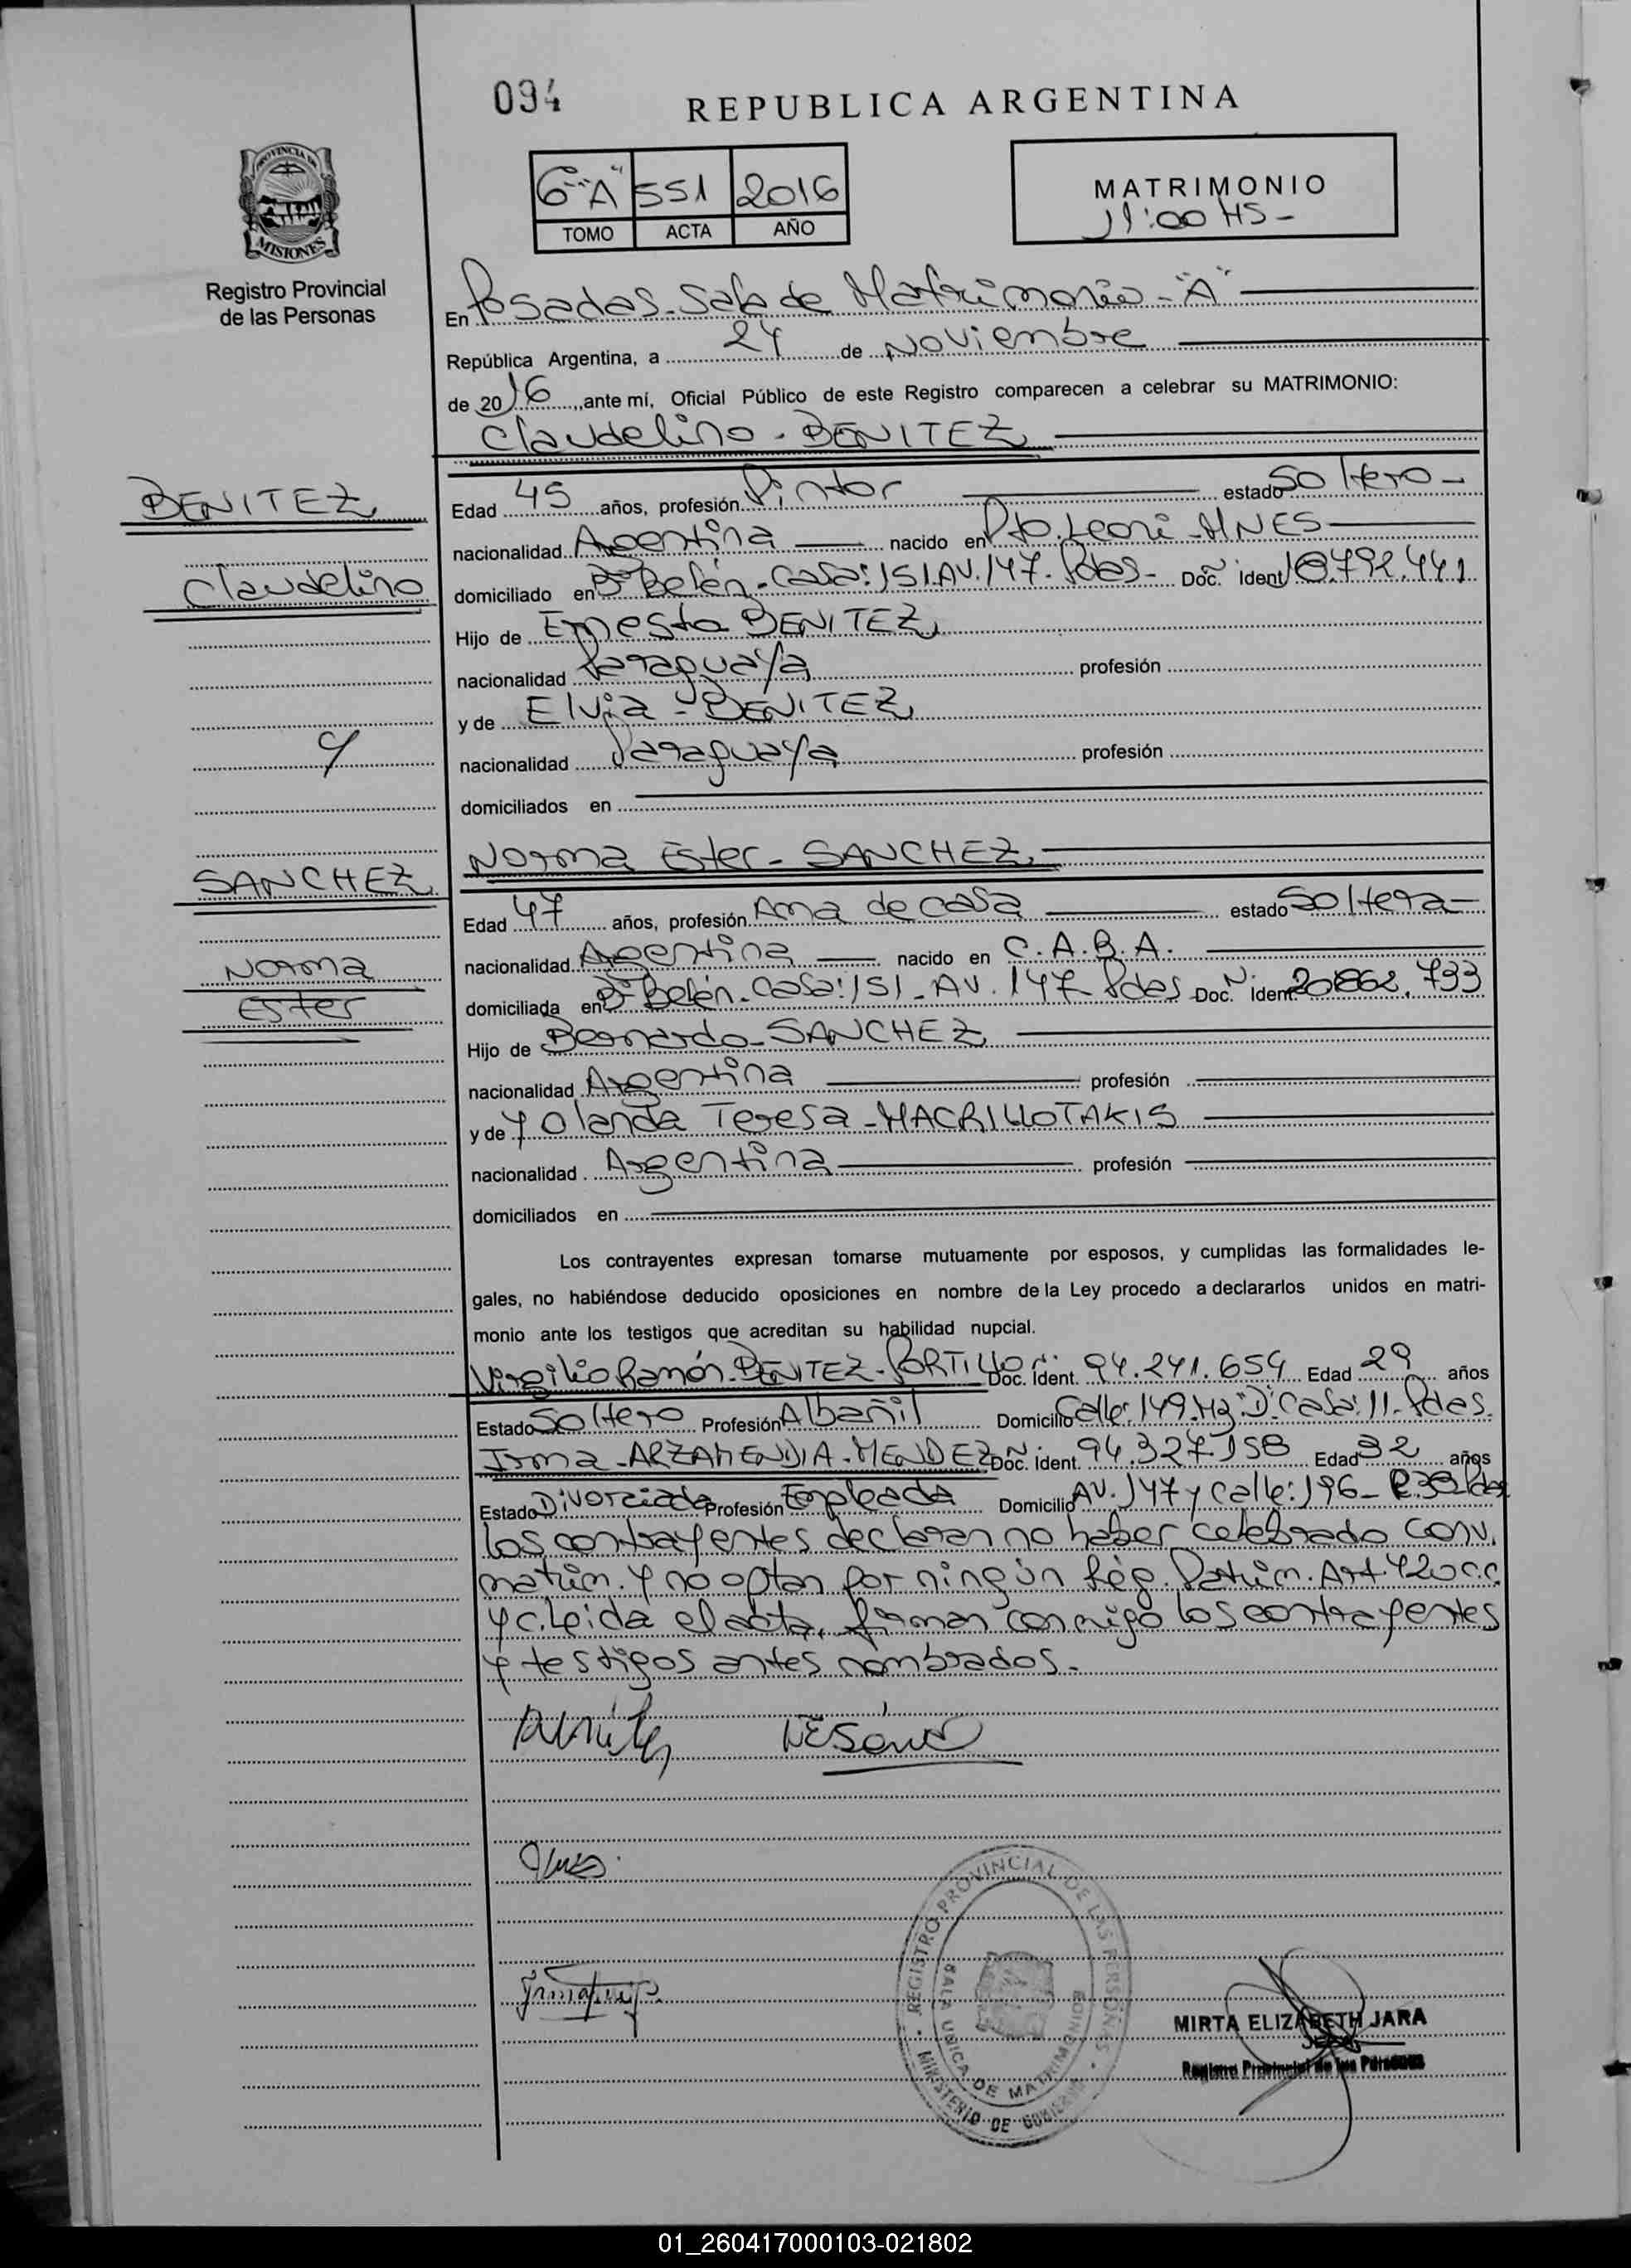 094
REPUBLICA ARGENTINA
PROVINCIA DE
MISIONES
Registro Provincial
de las Personas
6º "A" 551 2016
TOMO ACTA AÑO
MATRIMONIO
11:00 HS-
En Posadas. Sala de Matrimonio - "A"
República Argentina, a 24 de Noviembre
de 2016, ante mí, Oficial Público de este Registro comparecen a celebrar su MATRIMONIO:
Claudelino - BENITEZ
BENITEZ
Claudelino
Y
SANCHEZ
Norma
Ester
Edad 45 años, profesión Pintor estado Soltero-
nacionalidad Argentina nacido en Pto. Leoni - MNES
domiciliado en Bº Belén - Casa: 151. AV. 147 - Pdas - Doc. Nº ident 18.792.441
Hijo de Ernesto BENITEZ
nacionalidad Paraguaya profesión
y de Elvia - BENITEZ
nacionalidad Paraguaya profesión
domiciliados en
Norma Ester - SANCHEZ
Edad 47 años, profesión Ama de casa estado Soltera-
nacionalidad Argentina nacido en C.A.B.A.
domiciliada en Bº Belén - Casa: 151 - AV. 147 Pdas Doc. Nº ident. 20.862.733
Hijo de Bernardo - SANCHEZ
nacionalidad Argentina profesión
y de Yolanda Teresa - MACRILLOTAKIS
nacionalidad Argentina profesión
domiciliados en
Los contrayentes expresan tomarse mutuamente por esposos, y cumplidas las formalidades le-
gales, no habiéndose deducido oposiciones en nombre de la Ley procedo a declararlos unidos en matri-
monio ante los testigos que acreditan su habilidad nupcial.
Virgilio Ramón - BENITEZ - PORTILLO Doc. Ident. 94.241.654 Edad 29 años
Estado Soltero Profesión Albañil Domicilio Calle: 149. Mz "D" Casa: 11 - Pdas.
Irma - ARZAMENDIA - MENDEZ Doc. Ident. 94.327.158 Edad 32 años
Estado Divorciada Profesión Empleada Domicilio AV. 147 y Calle: 196 -
Los contrayentes declaran no haber celebrado Conv.
matrim. y no optan por ningún Rég. Patrim. Art. 420 C.C.
y C. Leida el acta, firman conmigo los contrayentes
y testigos antes nombrados.-
REGISTRO PROVINCIAL DE LAS PERSONAS
SALA UNICA DE MATRIMONIOS
MINISTERIO DE GOBIERNO
MIRTA ELIZABETH JARA
Registro Provincial de las Personas
01_260417000103-021802